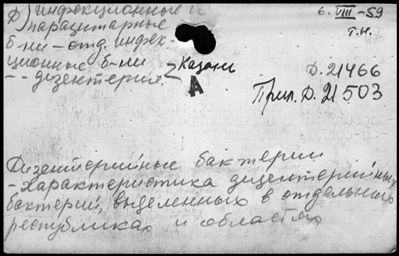 Д) инфекционные и
паразитарные
б-ни – отд. инфек
ционные б-ни
- - дизентерия – Казани
А
6. VIII – 59
т.н.
Д. 21466
Прил. Д. 21503
Дизентерийные бактерии
- характеристика дизентерийных
бактерий, выделенных в отдельных
республиках и областях